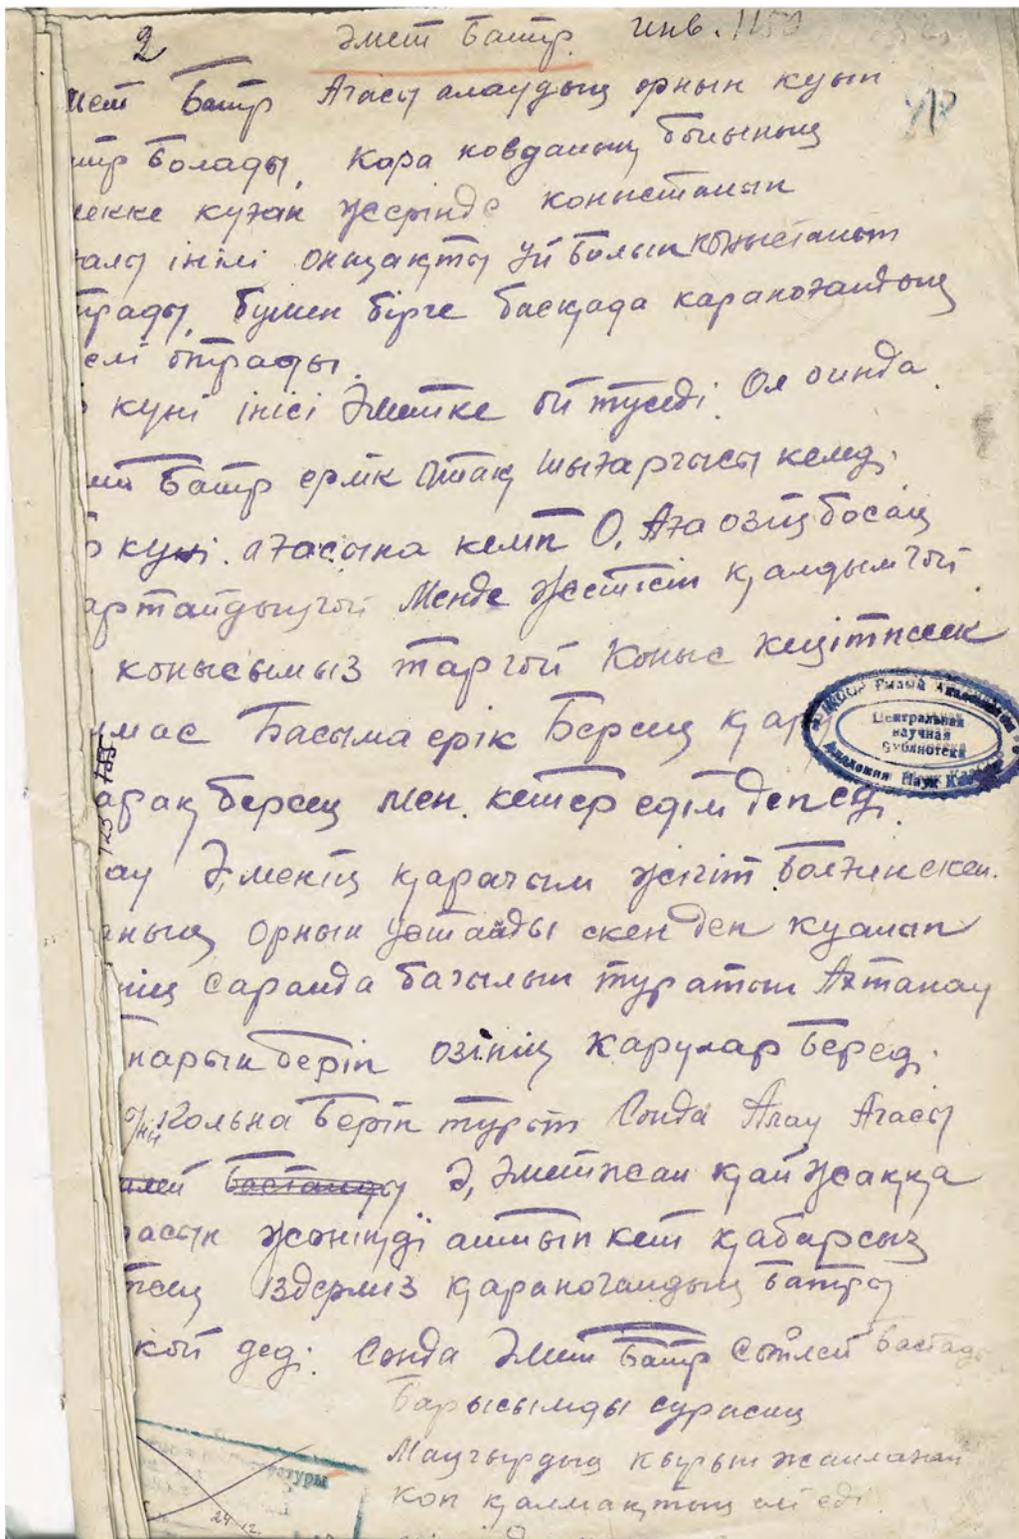 2 Әмет Батр. инв. 1150
мет Батр Ағасы алаудың орнын куып
тр Болады. Кара ковданың бойының
текке куған жерінде коныстанып
ғалы інілі оншақты үй Болып коныстанып
трады, бумен бірге басқада караноғайдың
елі отрады.
куні інісі Әметке ой туседі. Ол оинда
Батр ерлік атақ шығарғысы келеді.
куні. ағасына келіп О, Аға озің босаң
артайдың ғой Менде жетісіп қалдым ғой
конысымыз тар ғой Коныс кеңітпеек
лмас Басыма ерік Берсең қару
арақ берсең мен кетер едім деп еді.
ау Ә, менің қарағым жігіт Болған екен.
ның орнын ұстайды екен деп куанып
нің сарайда бағылып туратын Ақтанау
тпарын беріп озінің Карулар Береді.
Кольна Беріп турып Сонда Алау Ағасы
лей Бастайды Ә, Әметжан қай жаққа
расың жөніңді айтып кет қабарсыз
тсең іздерміз қараноғайдың Батры
кой деді. Сонда Әмет Батр Сөйлей Бастады
Барысымды сурасаң
Маңғырдың кырын жайлаған
коп қалмақтың елі еді.
Центральная
научная
библиотека
Академия Наук
туры
24 12.
123